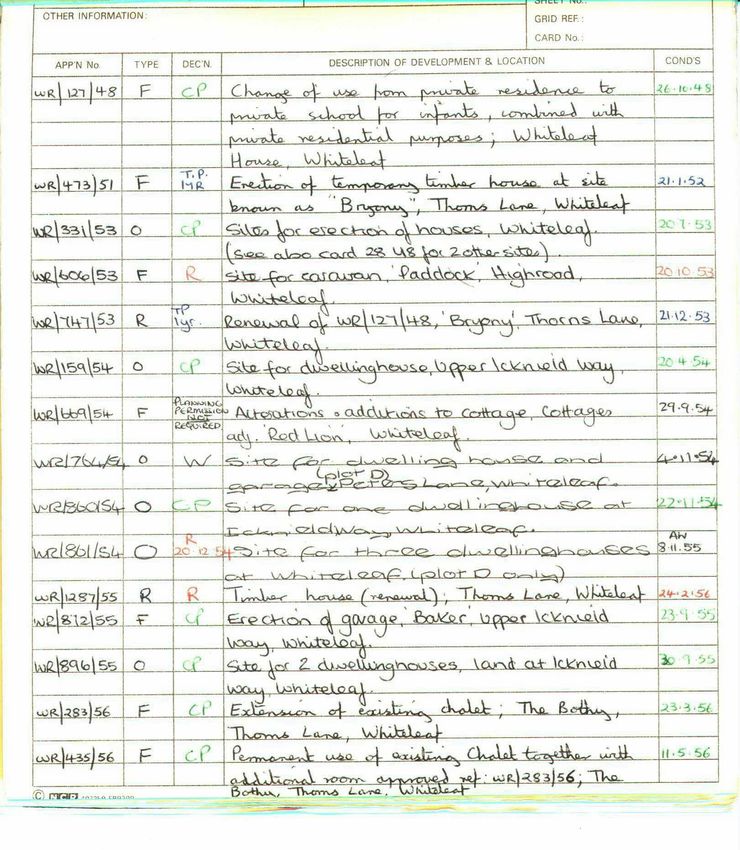 OTHER INFORMATION:
GRID REF.:
CARD No.:
APP'N No. TYPE DEC'N. DESCRIPTION OF DEVELOPMENT & LOCATION COND'S
WR/127/48 F CP Change of use from private residence to 26.10.48
private school for infants, combined with
private residential purposes; Whiteleaf
House, Whiteleaf
WR/473/51 F T.P. 1YR Erection of temporary timber house at site 21.1.52
known as "Bryony", Thorns Lane, Whiteleaf
WR/331/53 O CP Sites for erection of houses, Whiteleaf. 20.7.53
(See also card 28 U8 for 2 other sites).
WR/606/53 F R Site for caravan, 'Paddock', Highroad, 20.10.53
Whiteleaf.
WR/747/53 R TP 1yr. Renewal of WR/127/48, 'Bryony', Thorns Lane, 21.12.53
Whiteleaf.
WR/159/54 O CP Site for dwellinghouse, Upper Icknield Way, 20.4.54
Whiteleaf.
WR/669/54 F PLANNING PERMISSION NOT REQUIRED Alterations & additions to cottage, Cottages 29.9.54
adj. 'Red Lion', Whiteleaf.
WR/764/54 O W Site for dwelling house and 4.11.54
(plot D)
garage, Peters Lane, Whiteleaf.
WR/860/54 O CP Site for one dwellinghouse at 22.11.54
Icknield Way, Whiteleaf.
WR/861/54 O R 20.12.54 Site for three dwellinghouses AW 8.11.55
at Whiteleaf. (plot D only)
WR/1287/55 R R Timber house (renewal); Thorns Lane, Whiteleaf 24.2.56
WR/812/55 F CP Erection of garage, 'Baker', Upper Icknield 23.9.55
Way, Whiteleaf.
WR/896/55 O CP Site for 2 dwellinghouses, land at Icknield 30.9.55
Way, Whiteleaf.
WR/283/56 F CP Extension of existing chalet; The Bothy, 23.3.56
Thorns Lane, Whiteleaf
WR/435/56 F CP Permanent use of existing Chalet together with 11.5.56
additional room approved ref: WR/283/56; The
Bothy, Thorns Lane, Whiteleaf
© NCR